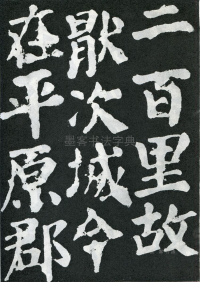 二百里故
猒次城今
在平原郡
墨客书法字典